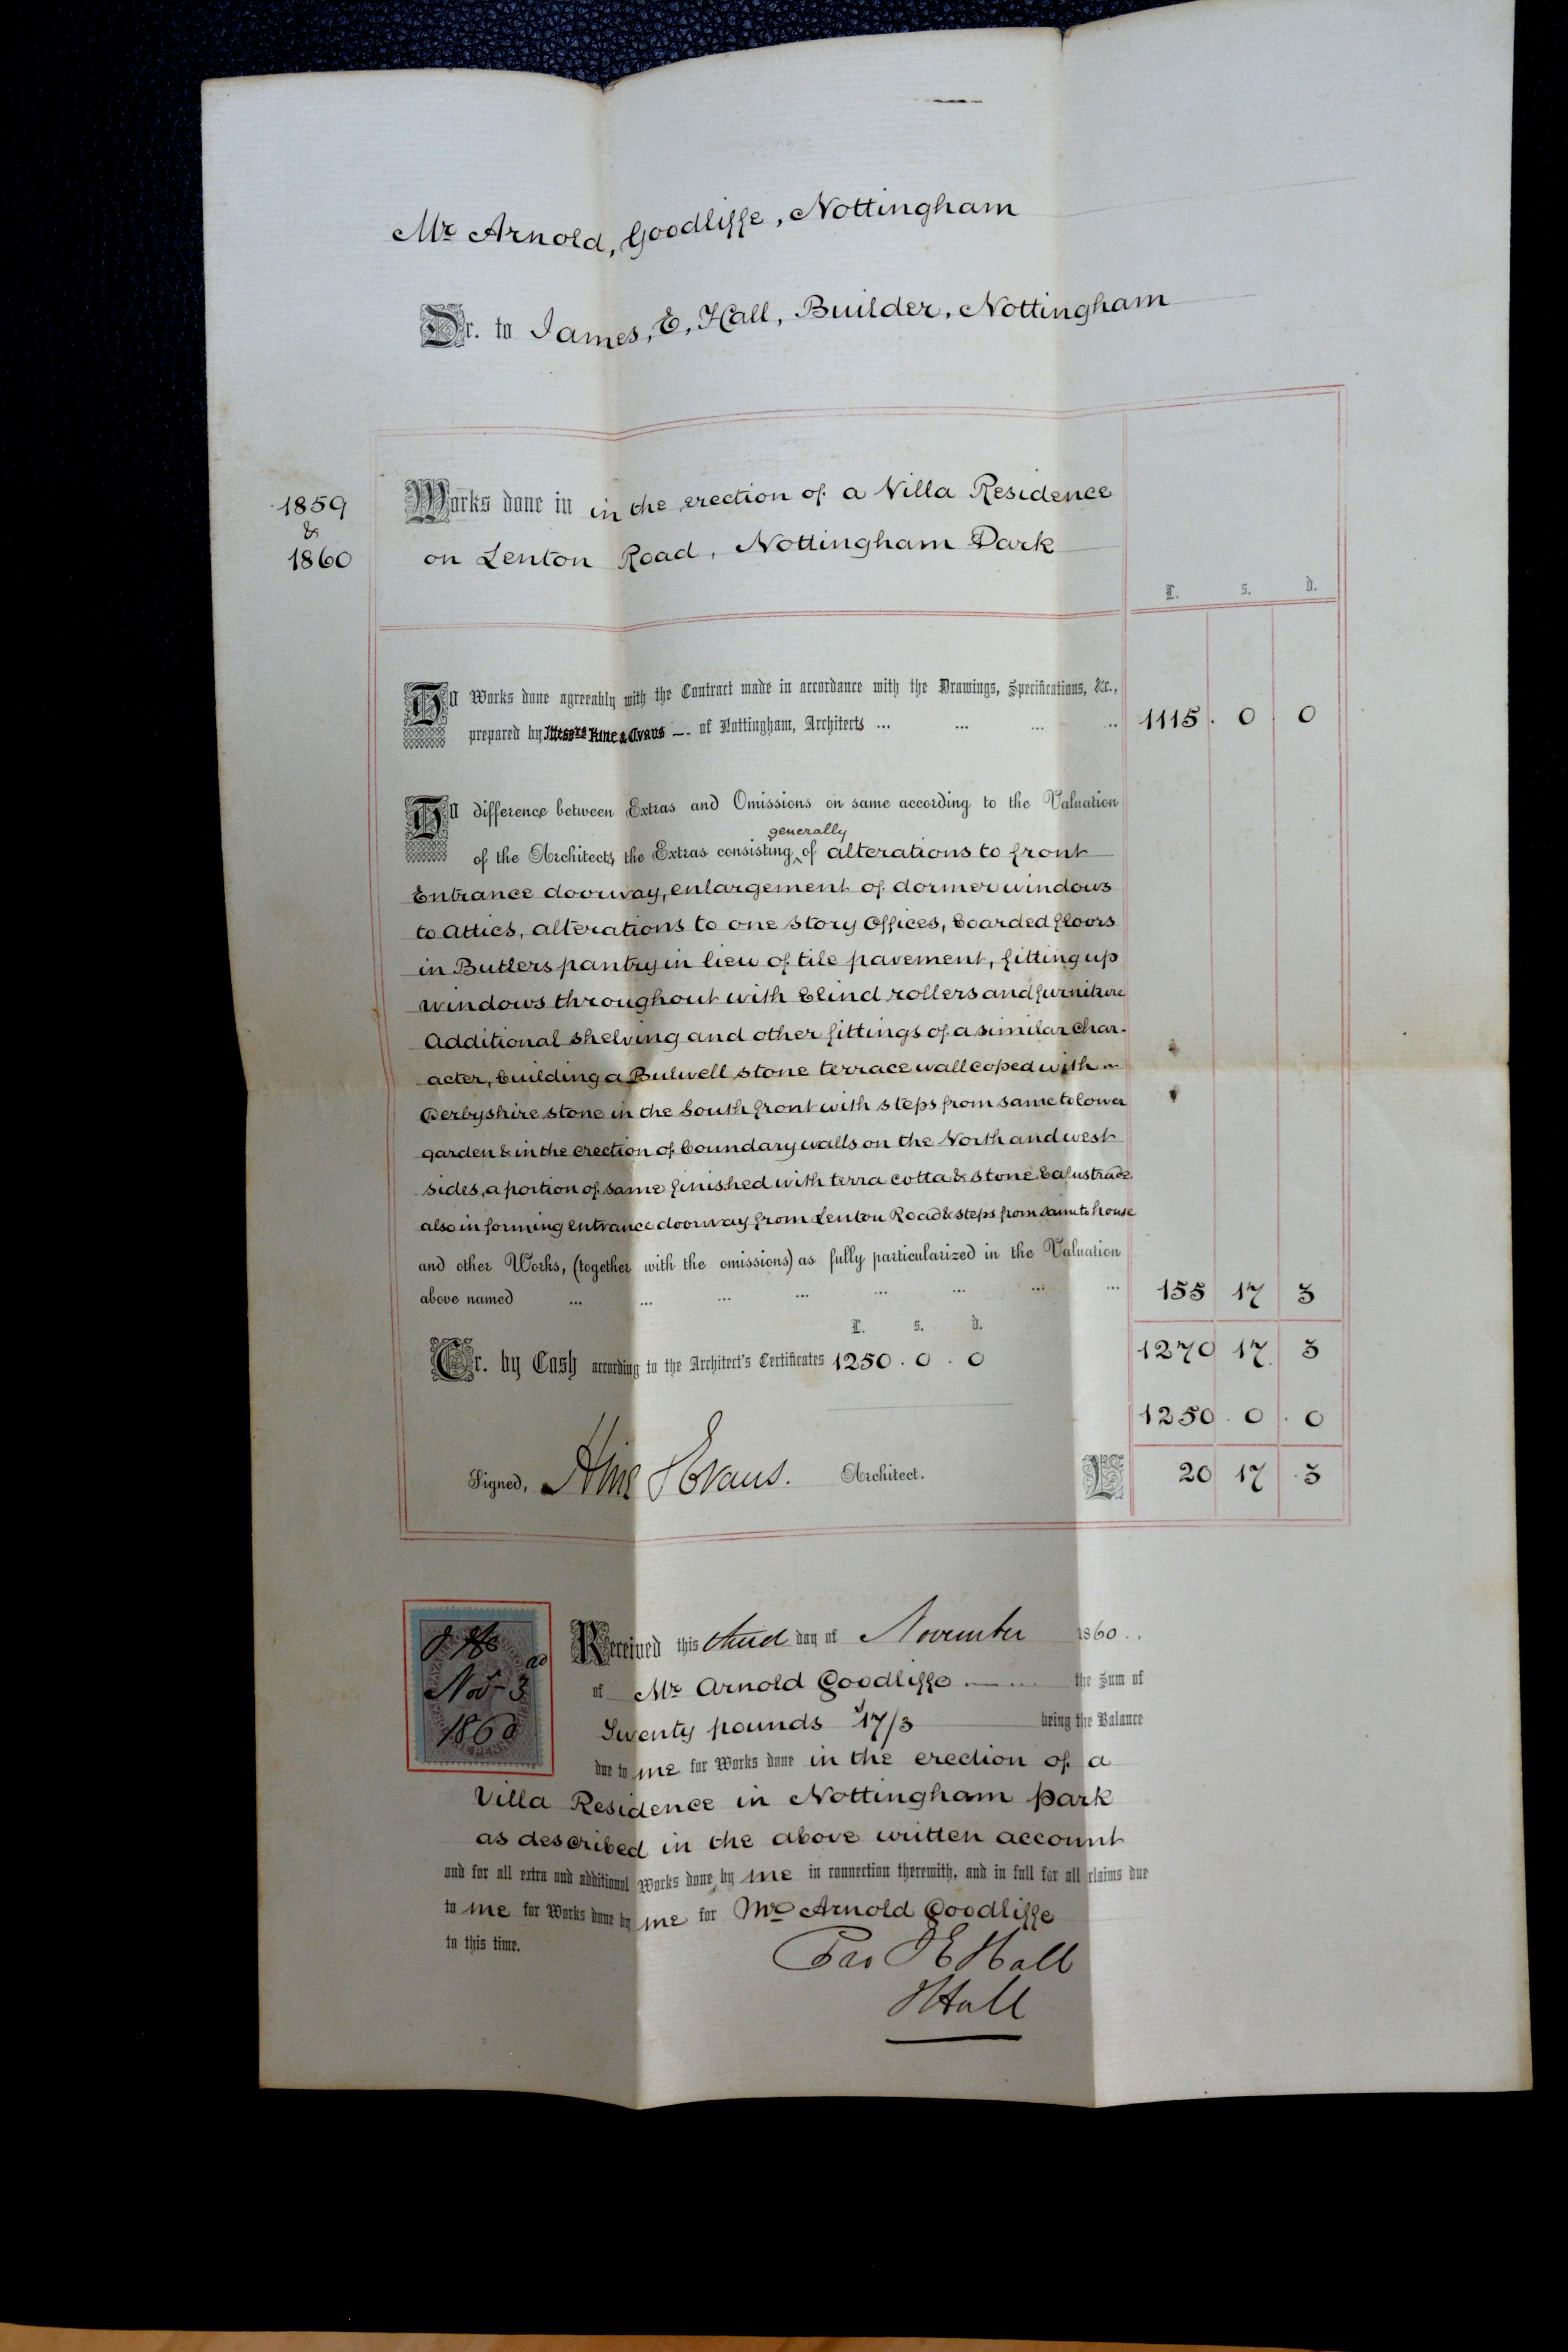 Mr Arnold, Goodliffe, Nottingham
Dr. to James, E, Hall, Builder, Nottingham
1859
&
1860
Works done in in the erection of a Villa Residence
on Lenton Road, Nottingham Park
£. s. d.
To Works done agreeably with the Contract made in accordance with the Drawings, Specifications, &c.,
prepared by Messrs Hine & Evans — of Nottingham, Architects ... ... ... ... 1115 . 0 . 0
To difference between Extras and Omissions on same according to the Valuation
generally
of the Architects, the Extras consisting ‸ of alterations to front
Entrance doorway, enlargement of dormer windows
to Attics, alterations to one story Offices, boarded floors
in Butlers pantry in lieu of tile pavement, fitting up
windows throughout with blind rollers and furniture
Additional shelving and other fittings of a similar char-
acter, building a Bulwell stone terrace wall coped with
Derbyshire stone in the South front with steps from same to lower
garden & in the erection of boundary walls on the North and west
sides, a portion of same finished with terra cotta & stone balustrade
also in forming entrance doorway from Lenton Road & steps from same to house
and other Works, (together with the omissions) as fully particularized in the Valuation
above named ... ... ... ... ... ... ... ... 155 17 3
£. s. d.
Cr. by Cash according to the Architect's Certificates 1250 . 0 . 0
1270 17 3
1250 . 0 . 0
Signed, Hine & Evans. Architect. £ 20 17 3
Received this third day of November 1860 . .
of Mr Arnold Goodliffe the Sum of
Twenty pounds 17/3 being the Balance
due to me for Works done in the erection of a
Villa Residence in Nottingham park
as described in the above written account
and for all extra and additional Works done by me in connection therewith, and in full for all claims due
to me for Works done by me for Mr Arnold Goodliffe
to this time.
Nov 3
1860
J E Hall
Hall